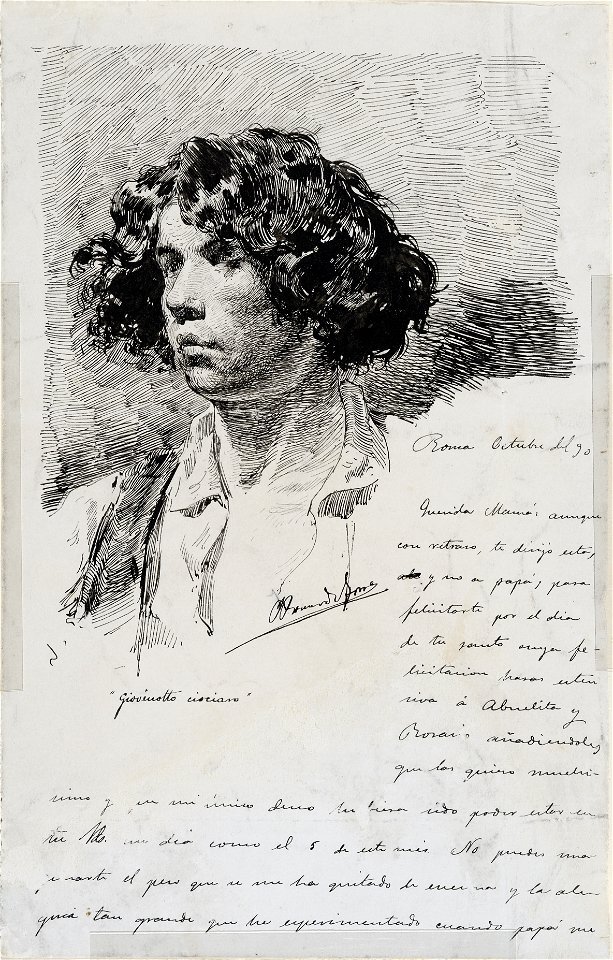 Roma Octubre del 90
Querida Mamá: aunque
con retraso, te dirijo esta,
y no a papá, para
felicitarte por el dia
de tu santo cuya fe-
licitacion haras exten
siva á Abuelita y
Rosario añadiendoles
que las quiero muchi-
"Giovenotto ciociaro"
simo y que mi único deseo hubiera sido poder estar en
un dia como el 5 de este mes. No puedes ima
el peso que se me ha quitado de encima y la ale-
gria tan grande que he experimentado cuando papá me